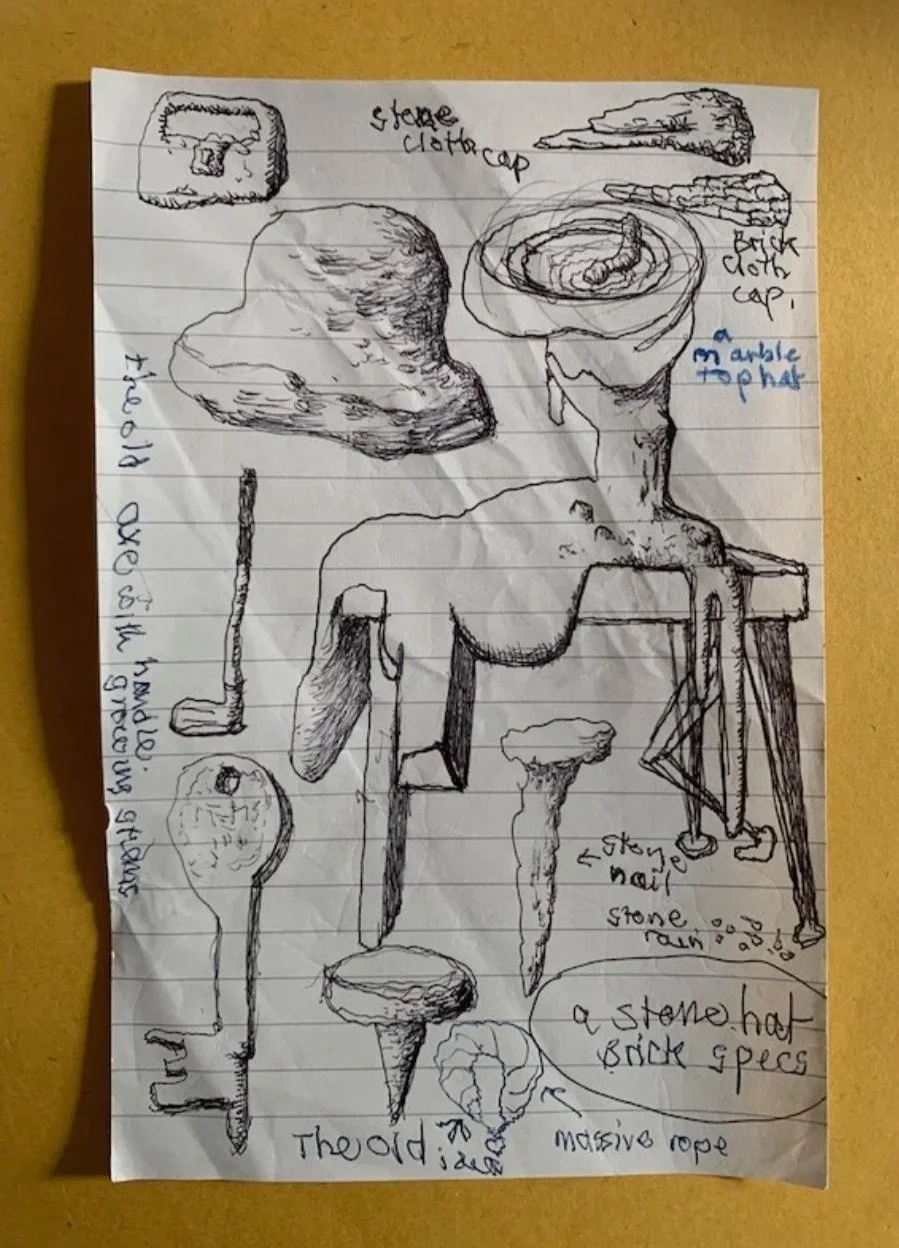 stone
cloth cap
Brick
cloth
cap.
a
marble
top hat
the old axe with handle
growing stems
← stone
nail
stone
rain
a stone hat
Brick specs
The old
massive rope